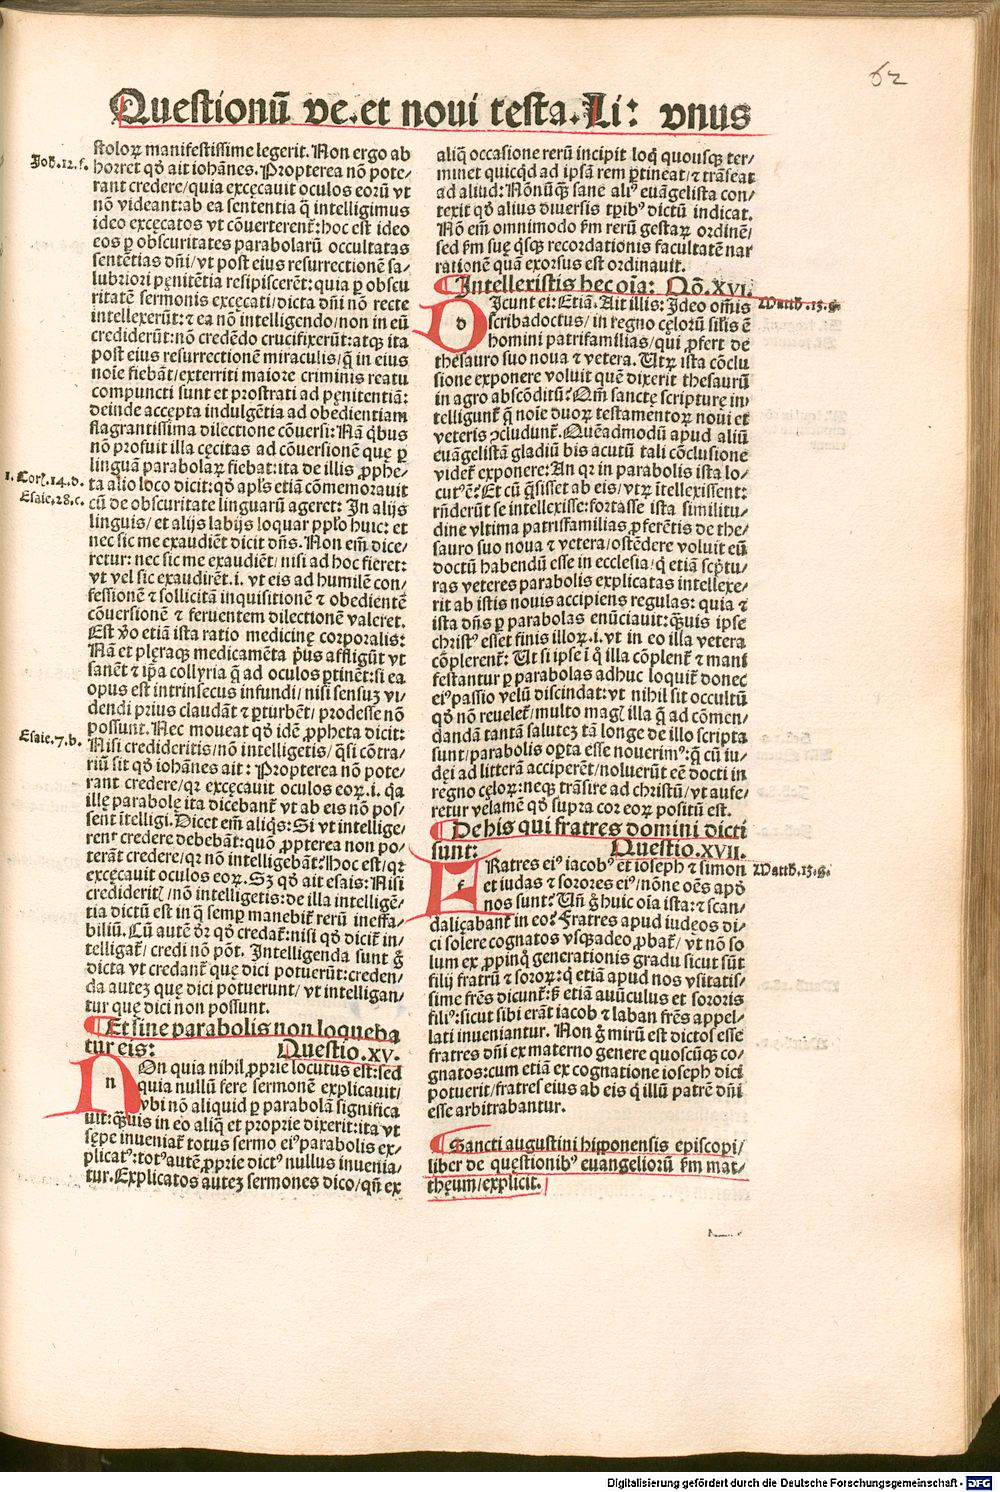 62
Questionū ve. et noui testa. Li: vnus
Joh. 12. f.
1. Corꝭ. 14. d.
Esaie. 28. c.
Esaie. 7. b.
stoloꝝ manifestissime legerit. Non ergo ab
horret qď ait iohānes. Propterea nō pote⸗
rant credere/ quia excęcauit oculos eorū vt
nō videant: ab ea sententia q̄ intelligimus
ideo excęcatos vt cōuerterent᷑: hoc est ideo
eos ꝑ obscuritates parabolarū occultatas
sentētias dn̄i/ vt post eius resurrectionē sa⸗
lubriori pęnitētia resipiscerēt: quia ꝑ obscu
ritatē sermonis excęcati/ dicta dn̄i nō recte
intellexerūt: ⁊ ea nō intelligendo/ non in eū
crediderūt: nō credēdo crucifixerūt: atqꝫ ita
post eius resurrectionē miraculis/ q̄ in eius
noīe fiebāt/ exterriti maiore criminis reatu
compuncti sunt et prostrati ad pęnitentiā:
deinde accepta indulgētia ad obedientiam
flagrantissima dilectione cōuersi: Nā q̇bus
nō profuit illa cęcitas ad cōuersionē que ꝑ
linguā parabolaꝝ fiebat: ita de illis ꝓphe⸗
ta alio loco dicit: qď apl̄s etiā cōmemorauit
cū de obscuritate linguarū ageret: In alijs
linguis/ et alijs labijs loquar ppl̄o huic: et
nec sic me exaudiēt dicit dn̄s. Non em̄ dice⸗
retur: nec sic me exaudiēt/ nisi ad hoc fieret:
vt vel sic exaudirēt. i. vt eis ad humilē con⸗
fessionē ⁊ sollicitā inquisitionē ⁊ obedientē
cōuersionē ⁊ feruentem dilectionē valeret.
Est v̄o etiā ista ratio medicinę corporalis:
Nā et plęraqꝫ medicamēta p̄us affligūt vt
sanēt ⁊ ip̄a collyria q̄ ad oculos ꝑtinēt: si ea
opus est intrinsecus infundi/ nisi sensuꝫ vi⸗
dendi prius claudāt ⁊ ꝑturbēt/ prodesse nō
possunt. Nec moueat qď idē ꝓpheta dicit:
Nisi credideritis/ nō intelligetis/ q̄si cōtra⸗
riū sit qď iohānes ait: Propterea nō pote⸗
rant credere/ qꝛ excęcauit oculos eoꝝ. i. q̇a
ille parabole ita dicebant᷑ vt ab eis nō pos⸗
sent ītelligi. Dicet em̄ aliq̇s: Si vt intellige⸗
rent credere debebāt: quō ꝓpterea non po⸗
terāt credere/ qꝛ nō intelligebāt? Hoc est/ qꝛ
excęcauit oculos eoꝝ. Sꝫ qď ait esais: Nisi
credideritꝭ/ nō intelligetis: de illa intelligē⸗
tia dictū est in q̄ semꝑ manebit᷑ rerū ineffa⸗
biliū. Cū autē dꝛ: qď credat᷑: nisi qď dicit᷑ in⸗
telligat᷑/ credi nō pōt. Intelligenda sunt g̊
dicta vt credant᷑ quę dici potuerūt: creden⸗
da auteꝫ quę dici potuerunt/ vt intelligan⸗
tur quę dici non possunt.
Et sine parabolis non loqueba
tur eis: Questio. XV.
n
NOn quia nihil ꝓprie locutus est: sed
quia nullū fere sermonē explicauit/
vbi nō aliquid ꝑ parabolā significa
uit: q̄uis in eo aliq̇ et proprie dixerit: ita vt
sępe inueniat᷑ totus sermo ei⁹ parabolis ex⸗
plicat⁹: tot⁹ autē ꝓprie dict⁹ nullus inuenia⸗
tur. Explicatos auteꝫ sermones dico/ qn̄ ex
aliq̄ occasione rerū incipit loq̇ quousqꝫ ter⸗
minet quicq̇d ad ipsā rem ꝑtineat/ ⁊ trāseat
ad aliud: Nōnūq̄ꝫ sane ali⁹ euāgelista con⸗
texit qď alius diuersis tp̄ib⁹ dictū indicat.
Nō em̄ omnimodo ẜm rerū gestaꝝ ordinē/
sed ẜm suę q̇sqꝫ recordationis facultatē nar
rationē quā exorsus est ordinauit.
Intellexistis hec oīa: Qō. XVI.
Matth. 13. g.
d
DJcunt ei: Etiā. Ait illis: Ideo om̄is
scriba doctus/ in regno cęlorū sil̄is ē
homini patrifamilias/ qui ꝓfert de
thesauro suo noua ⁊ vetera. Utꝝ ista cōclu
sione exponere voluit quē dixerit thesaurū
in agro abscōditū? Om̄ sanctę scripturę in⸗
telligunt᷑ q̄ noīe duoꝝ testamentoꝝ noui et
veteris ꝯcludunt᷑. Quēadmodū apud aliū
euāgelistā gladiū bis acutū tali cōclusione
videt᷑ exponere: An qꝛ in parabolis ista lo⸗
cut⁹ ē? Et cū q̄sisset ab eis/ vtꝝ ītellexissent:
rn̄derūt se intellexisse: fortasse ista similitu⸗
dine vltima patrisfamilias ꝓferētis de the⸗
sauro suo noua ⁊ vetera/ ostēdere voluit eū
doctū habendū esse in ecclesia/ q̇ etiā scp̄tu⸗
ras veteres parabolis explicatas intellexe⸗
rit ab istis nouis accipiens regulas: quia ⁊
ista dn̄s ꝑ parabolas enūciauit: q̄ꝫuis ipse
christ⁹ esset finis illoꝝ. i. vt in eo illa vetera
cōplerent᷑: Ut si ipse i q̊ illa cōplent᷑ ⁊ mani
festantur ꝑ parabolas adhuc loquit᷑ donec
ei⁹ passio velū discindat: vt nihil sit occultū
qď nō reuelet᷑/ multo magꝭ illa q̄ ad cōmen⸗
dandā tantā salutēꝫ tā longe de illo scripta
sunt/ parabolis opta esse nouerim⁹: q̄ cū iu⸗
dęi ad litterā acciperēt/ noluerūt eē docti in
regno cęloꝝ: neqꝫ trāsire ad christū/ vt aufe⸗
retur velamē qď supra cor eoꝝ positū est.
De his qui fratres domini dicti
sunt: Questio. XVII.
Matth. 13. g.
f
FRatres ei⁹ iacob⁹ et ioseph ⁊ simon
et iudas ⁊ sorores ei⁹/ nōne oēs apď
nos sunt? Un̄ g̊ huic oīa ista: ⁊ scan⸗
daliçabant᷑ in eo? Fratres apud iudeos di⸗
ci solere cognatos vsqꝫadeo ꝓbat᷑/ vt nō so
lum ex ꝓpinq̇ generationis gradu sicut sūt
filij fratrū ⁊ sororꝝ: q̇ etiā apud nos vsitatis⸗
sime frēs dicunt᷑: sꝫ etiā auūculus et sororis
fili⁹: sicut sibi erāt iacob ⁊ laban frēs appel⸗
lati inueniantur. Non g̊ mirū est dictos esse
fratres dn̄i ex materno genere quoscūqꝫ co⸗
gnatos: cum etiā ex cognatione ioseph dici
potuerit/ fratres eius ab eis q̇ illū patrē dn̄i
esse arbitrabantur.
Sancti augustini hipponensis episcopi/
liber de quęstionib⁹ euangeliorū ẜm mat⸗
thęum/ explicit.
Digitalisierung gefördert durch die Deutsche Forschungsgemeinschaft - DFG